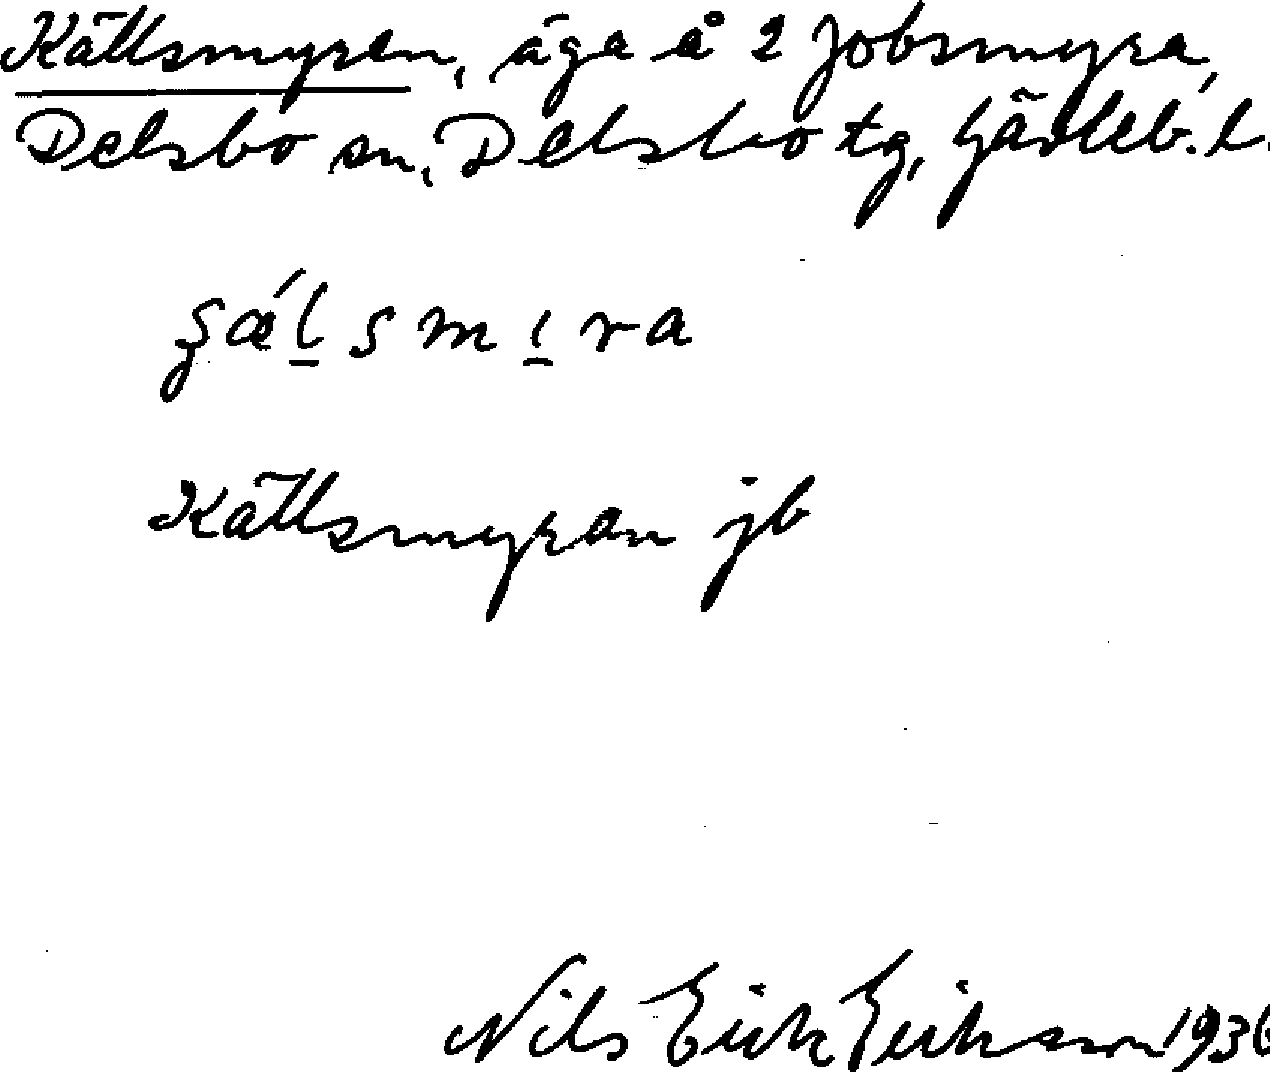 Källsmyren, äga å 2 Jobsmyra,
Delsbo sn, Delsbo tg, Gävleb. l.
Källsmyran jb
Nils Erik Eriksson 1936